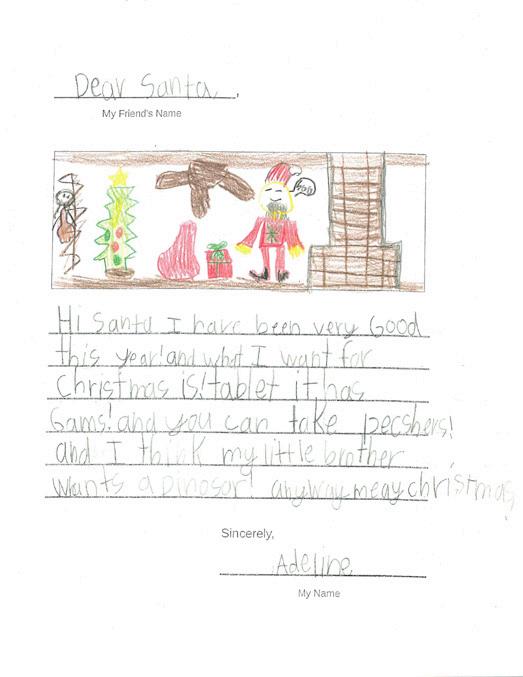 Dear Santa,
My Friend's Name
Hi Santa I have been very Good
this year! and what I want for
Christmas is! tablet it has
Gams! and you can take pecshers!
and I think my little brother
wants a Dinosor! anyway meay christmas!
Sincerely,
Adeline
My Name